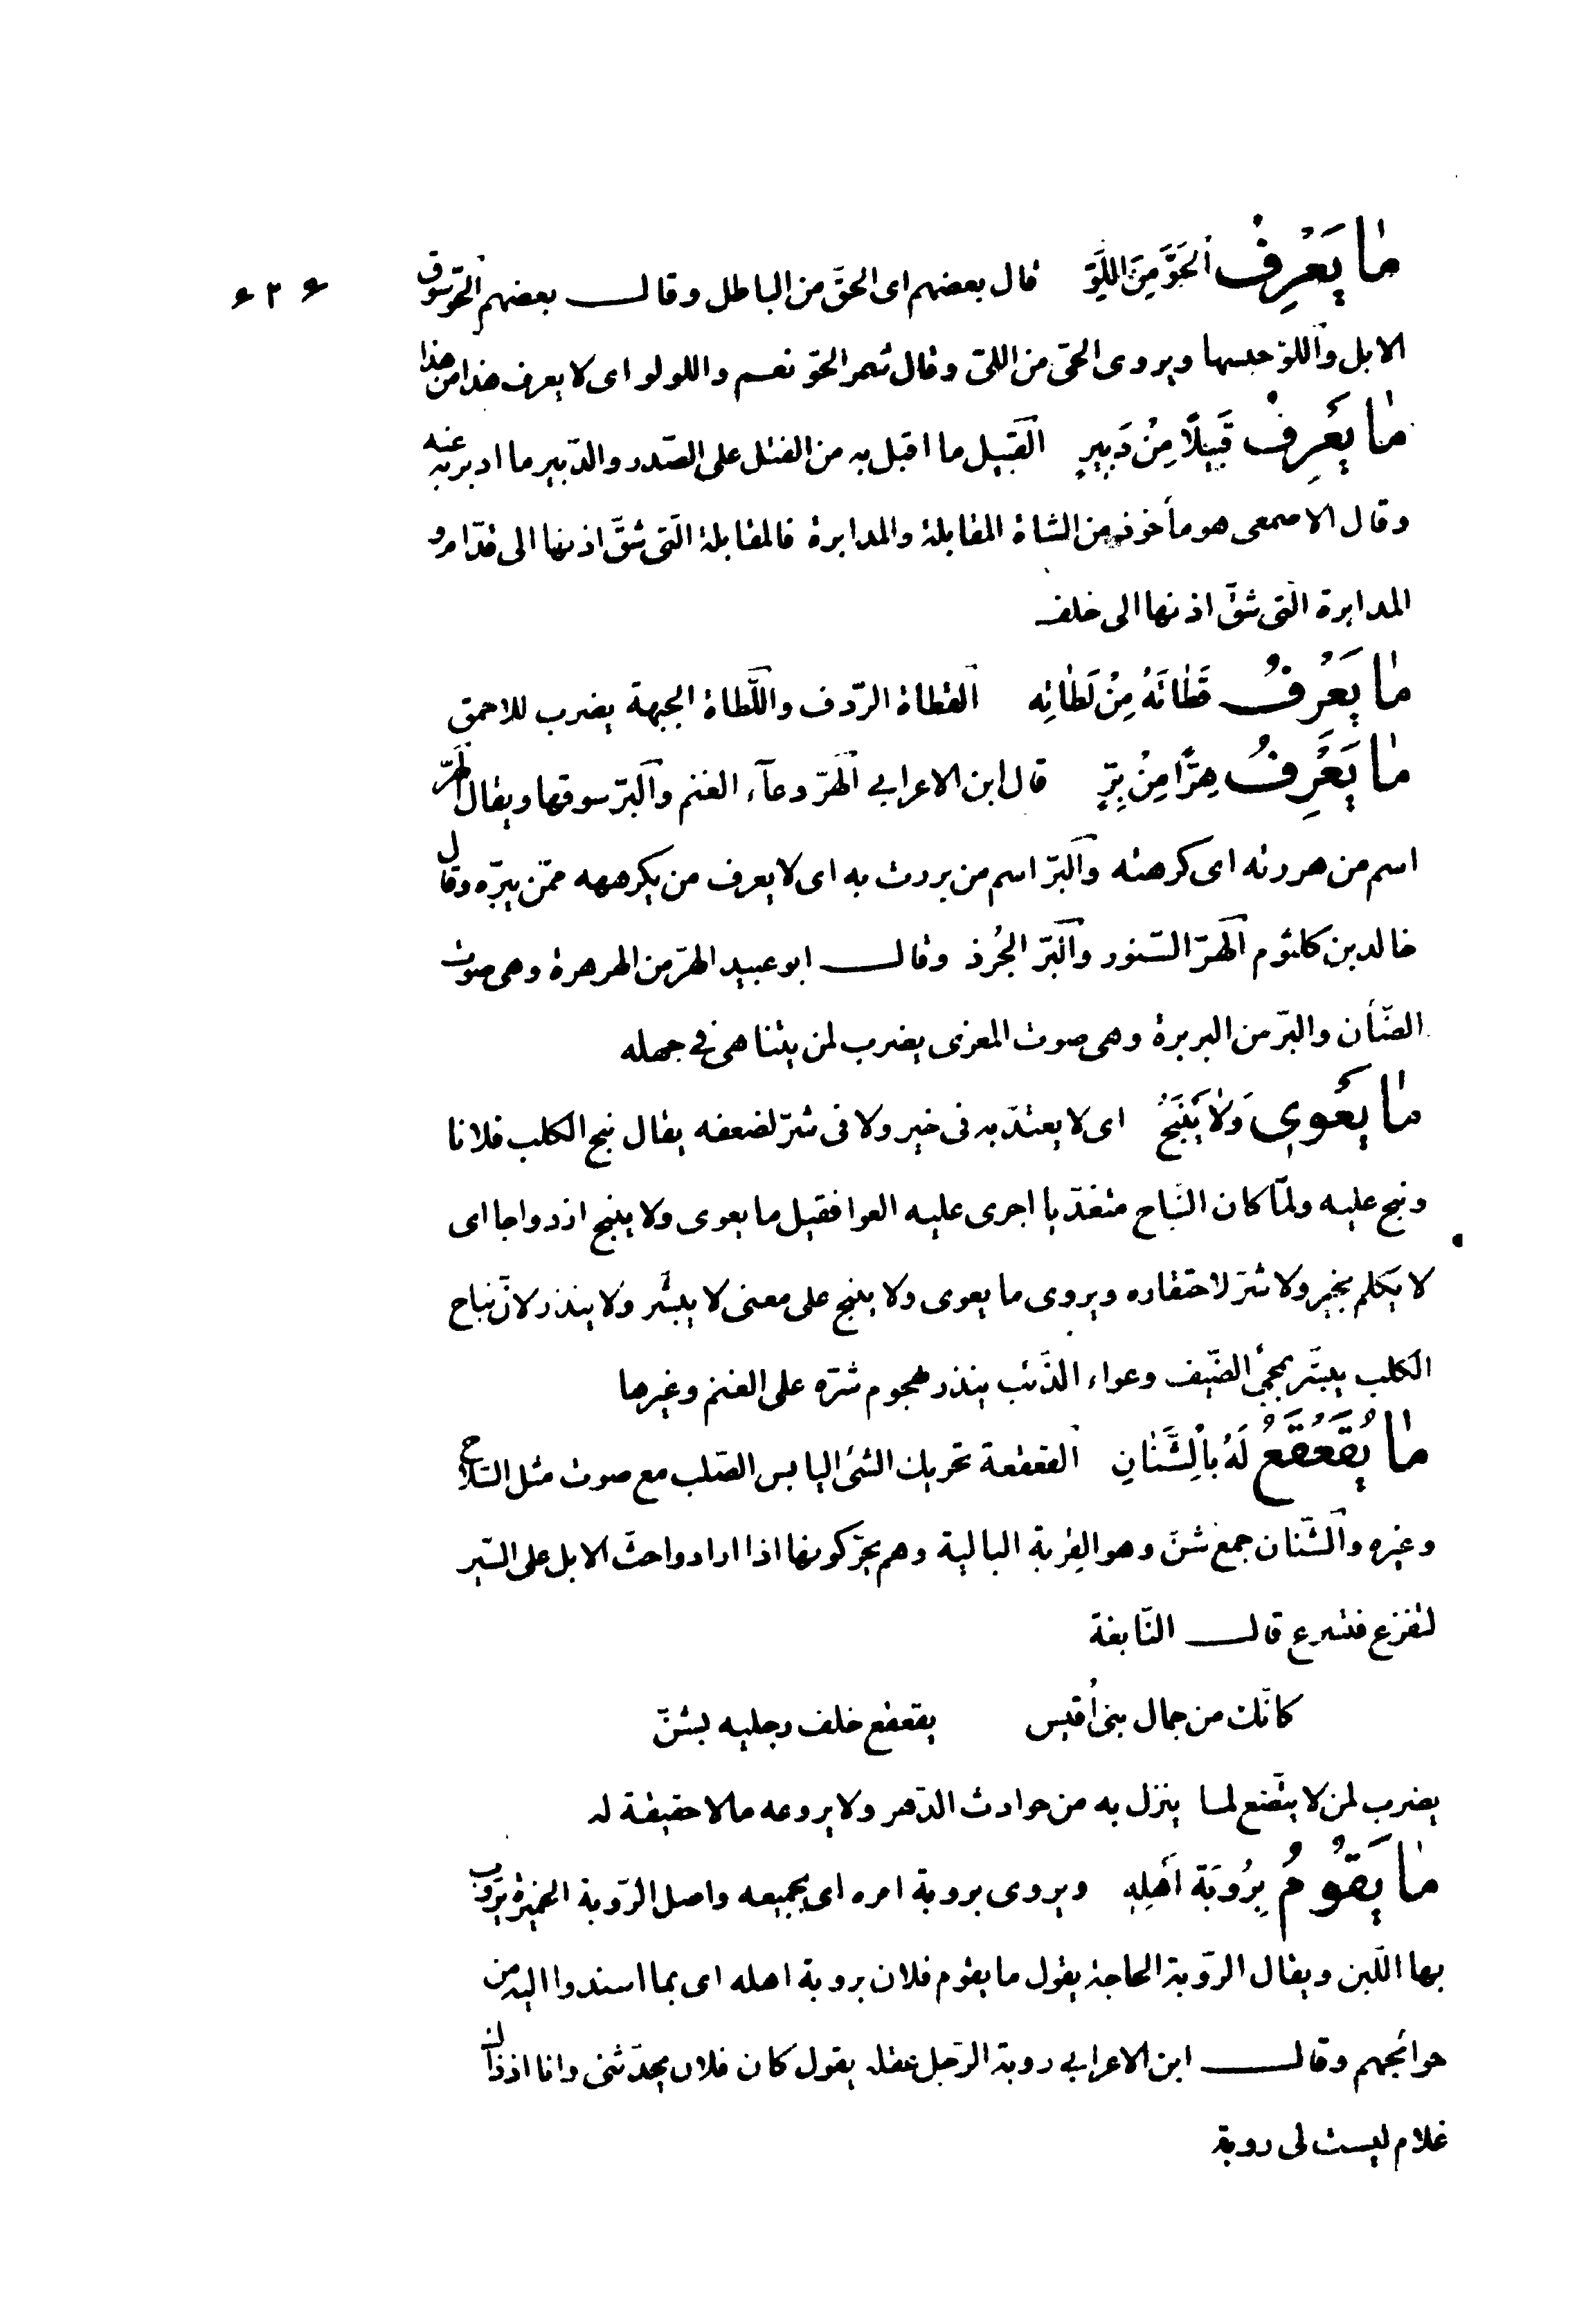 ۶۲۶
مٰا يَعْرِفُ الْحَوَّ مِنَ اللَّوِّ قال بعضهم اى الحقّ من الباطل وقال بعضهم الحوّ سوق
الابل واللّوّ حبسها ويروى الحىّ من اللىّ وقال شمر الحوّ نعم واللو لو اى لا يعرف هذا من هذا
مٰا يَعْرِفُ قَبِيلًا مِنْ دَبِيرٍ القبيل ما اقبل به من الفتل على الصّدر والدّبير ما ادبر به عنه
وقال الاصمعى هو مأخوذ من الشاة المقابلة والمدابرة فالمقابلة الّتى شقّ اذنها الى قدّام و
المدابرة الّتى شقّ اذنها الى خلف
مٰا يَعْرِفُ قَطٰاتَهُ مِنْ لَطٰاتِهِ القطاة الرّدف واللّطاة الجبهة يضرب للاحمق
مٰا يَعْرِفُ هِرًّا مِنْ بِرٍّ قال ابن الاعرابي الهرّ دعآء الغنم والبرّ سوقها ويقال الهرّ
اسم من هررته اى كرهته والبرّ اسم من بررت به اى لا يعرف من يكرهه ممّن يبرّه وقال
خالد بن كلثوم الهرّ السّنور والبرّ الجُرذ وقال ابو عبيد الهرّ من الهرهرة وهى صوت
الضّأن والبرّ من البربرة وهى صوت المعزى يضرب لمن يتناهى في جهله
مٰا يَعْوِى وَلٰا يَنْبَحُ اى لا يعتدّ به فى خير ولا فى شرّ لضعفه يقال نبح الكلب فلانا
ونبح عليه ولمّا كان النّباح متعدّيا اجرى عليه العوا فقيل ما يعوى ولا ينبح ازدواجا اى
لا يكلم بخير ولا شرّ لاحتقاره ويروى ما يعوى ولا ينبح على معنى لا يبشّر ولا ينذر لانّ نباح
الكلب يبشّر بمجئ الضّيف وعواء الذّئب ينذر هجوم شرّه على الغنم وغيرها
مٰا يُقَعْقَعُ لَهُ بِالشِّنٰانِ القعقعة تحريك الشئ اليابس الصّلب مع صوت مثل السّلاح
وغيره والشّنان جمع شنّ وهو القربة البالية وهم يحرّكونها اذا ارادوا حثّ الابل على السّير
لتفزع فتسرع قال النّابغة
كانّك من جمال بنى اُقيس يقعقع خلف رجليه بشنّ
يضرب لمن لا يتّضع لما ينزل به من حوادث الدّهر ولا يروعه ما لا حقيقة له
مٰا يَقُومُ بِرُوبَةِ أَهْلِهِ ويروى بروبة امره اى بجميعه واصل الرّوبة الخميرة يروب
بها اللّبن ويقال الرّوبة الحاجة يقول ما يقوم فلان بروبة اهله اى بما اسندوا اليه من
حوائجهم وقال ابن الاعرابي روبة الرّجل عقله يقول كان فلان يحدّثنى وانا اذ ذاك
غلام ليست لى روبة